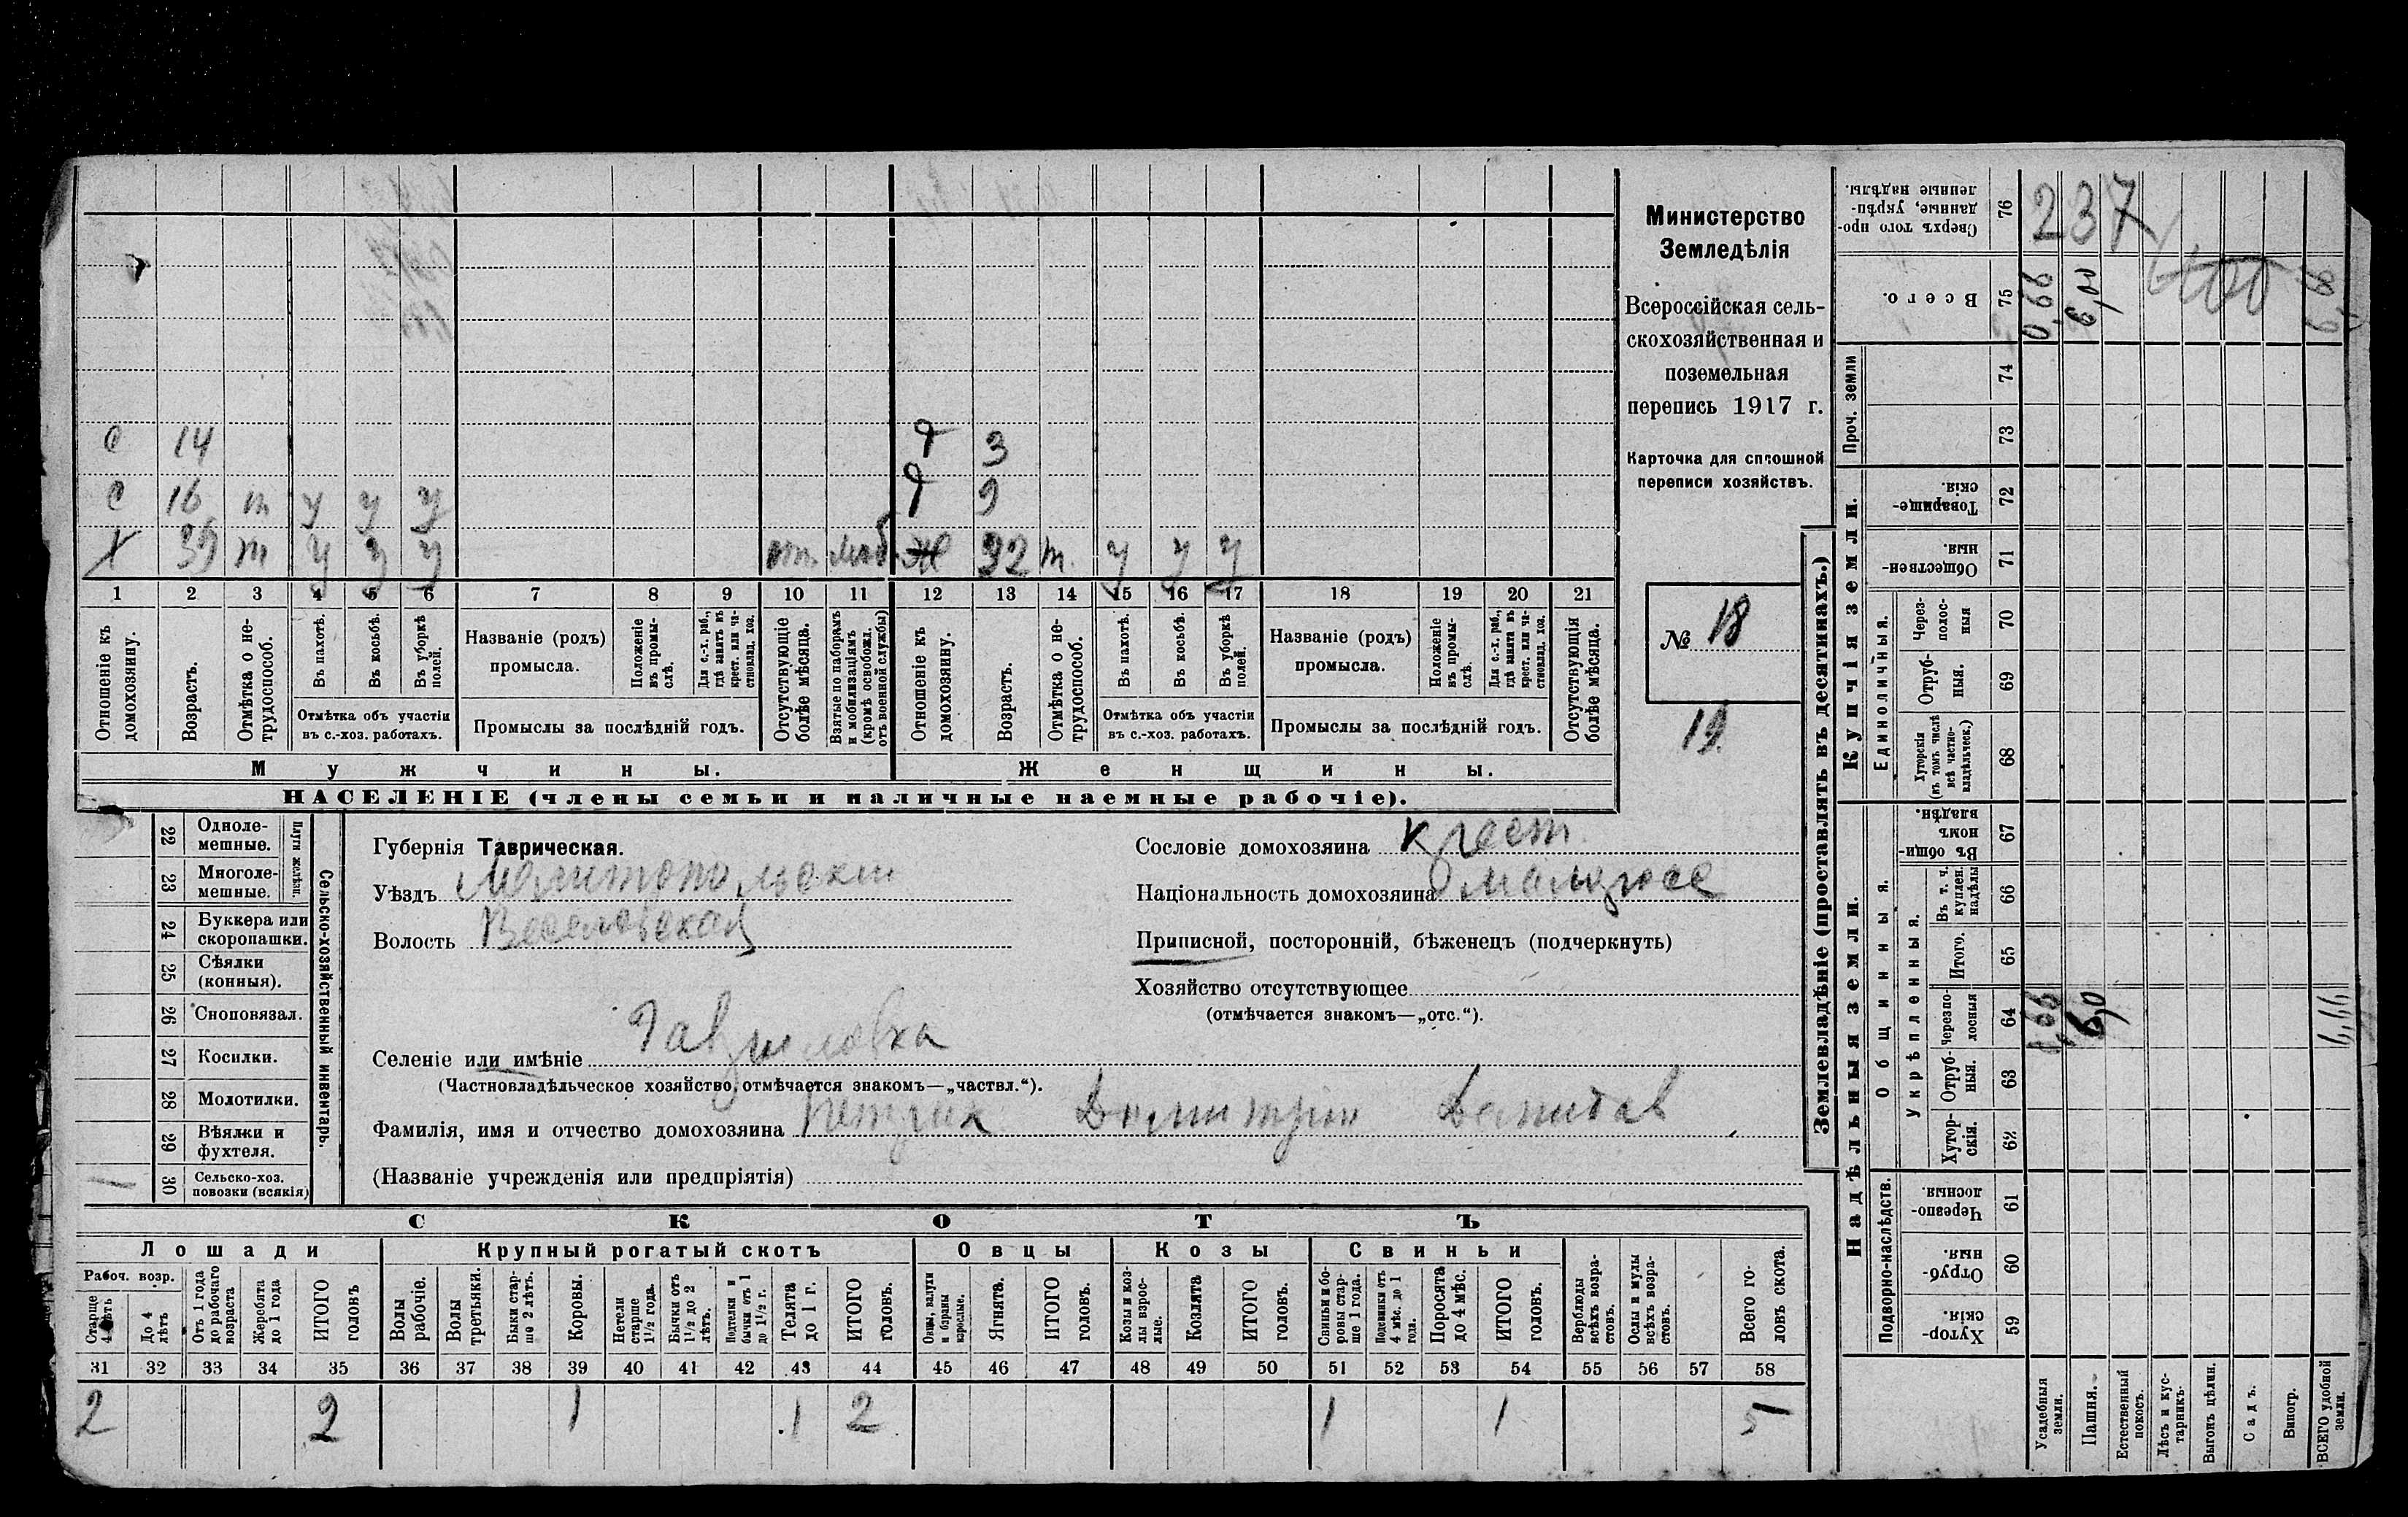 С 14 Д 3
С 16 т у у у Д 9
Х 39 т у у у от. моб. Ж 32 т. у у у
1 2 3 4 5 6 7 8 9 10 11 12 13 14 15 16 17 18 19 20 21
Отношеніе къ домохозяину.
Возрастъ.
Отмѣтка о не-трудоспособ.
Въ пахотѣ.
Въ косьбѣ.
Въ уборкѣ полей.
Отмѣтка объ участіи въ с.-хоз. работахъ.
Названіе (родъ) промысла.
Положеніе въ промы-слѣ.
Для с.-х. раб., гдѣ занятъ въ крест. или ча-стновлад. хоз.
Промыслы за послѣдній годъ.
Отсутствующіе болѣе мѣсяца.
Взятые по наборамъ и мобилизаціямъ (кромѣ освобожд. отъ военной службы)
Отношеніе къ домохозяину.
Возрастъ.
Отмѣтка о не-трудоспособ.
Въ пахотѣ.
Въ косьбѣ.
Въ уборкѣ полей.
Отмѣтка объ участіи въ с.-хоз. работахъ.
Названіе (родъ) промысла.
Положеніе въ промы-слѣ.
Для с.-х. раб., гдѣ занята въ крест. или ча-стновлад. хоз.
Промыслы за послѣдній годъ.
Отсутствующія болѣе мѣсяца.
Мужчины. Женщины.
НАСЕЛЕНІЕ (члены семьи и наличные наемные рабочіе).
Министерство
Земледѣлія
Всероссійская сель-
скохозяйственная и
поземельная
перепись 1917 г.
Карточка для сплошной
переписи хозяйствъ.
№ 18
19.
22 Одноле-мешные.
23 Многоле-мешные.
Плуги желѣзн.
24 Буккера или скоропашки.
25 Сѣялки (конныя).
26 Сноповязал.
27 Косилки.
28 Молотилки.
29 Вѣялки и фухтеля.
1 30 Сельско-хоз. повозки (всякія)
Сельско-хозяйственный инвентарь.
Губернія Таврическая.
Уѣздъ Мелитопольскій
Волость Веселовская
Селеніе или имѣніе Гавриловка
(Частновладѣльческое хозяйство, отмѣчается знакомъ—„частвл.“).
Фамилія, имя и отчество домохозяина Димитрій
(Названіе учрежденія или предпріятія)
Сословіе домохозяина крест.
Національность домохозяина малорос
Приписной, посторонній, бѣженецъ (подчеркнуть)
Хозяйство отсутствующее
(отмѣчается знакомъ—„отс.“).
СКОТЪ
Лошади Крупный рогатый скотъ Овцы Козы Свиньи
Рабоч. возр.
Старше 4 лѣтъ
До 4 лѣтъ
Отъ 1 года до рабочаго возраста
Жеребята до 1 года
ИТОГО головъ
Волы рабочіе.
Волы третьяки.
Быки стар-ше 2 лѣтъ.
Коровы.
Нетели старше 1½ года.
Бычки отъ 1½ до 2 лѣтъ.
Подтелки и бычки отъ 1 до 1½ г.
Телята до 1 г.
ИТОГО головъ.
Овцы, валухи и бараны взрослые.
Ягнята.
ИТОГО головъ.
Козы и коз-лы взрос-лые.
Козлята
ИТОГО головъ.
Свиньи и бо-ровы стар-ше 1 года.
Подсвинки отъ 4 мѣс. до 1 года.
Поросята до 4 мѣс.
ИТОГО головъ.
Верблюды всѣхъ возра-стовъ.
Ослы и мулы всѣхъ возра-стовъ.
Всего го-ловъ скота.
31 32 33 34 35 36 37 38 39 40 41 42 43 44 45 46 47 48 49 50 51 52 53 54 55 56 57 58
2 2 1 1 2 1 1 5
Землевладѣніе (проставлять въ десятинахъ.)
Надѣльныя земли. Купчія земли. Проч. земли
Подворно-наслѣдств. Общинныя. Укрѣпленныя. Единоличныя.
Хутор-скія. 59
Отруб-ныя. 60
Черезпо-лосныя 61
Хутор-скія. 62
Отруб-ныя. 63
Черезпо-лосныя 64
Итого. 65
Въ т. ч. куплен. надѣлы 66
Въ общин-номъ владѣн. 67
Хуторскія (въ томъ числѣ всѣ частно-владѣльческ.) 68
Отруб-ныя. 69
Через-полос-ныя 70
Обществен-ныя. 71
Товарище-скія. 72
73
74
Всего. 75
Сверхъ того про-данные, укрѣп-ленные надѣлы. 76
Усадебныя земли. 0,66 0,66
Пашня. 6,0 6,00
Естественный покосъ.
Лѣсъ и кус-тарникъ.
Выгонъ цѣлин.
Садъ.
Виногр.
ВСЕГО удобной земли. 6,66
237